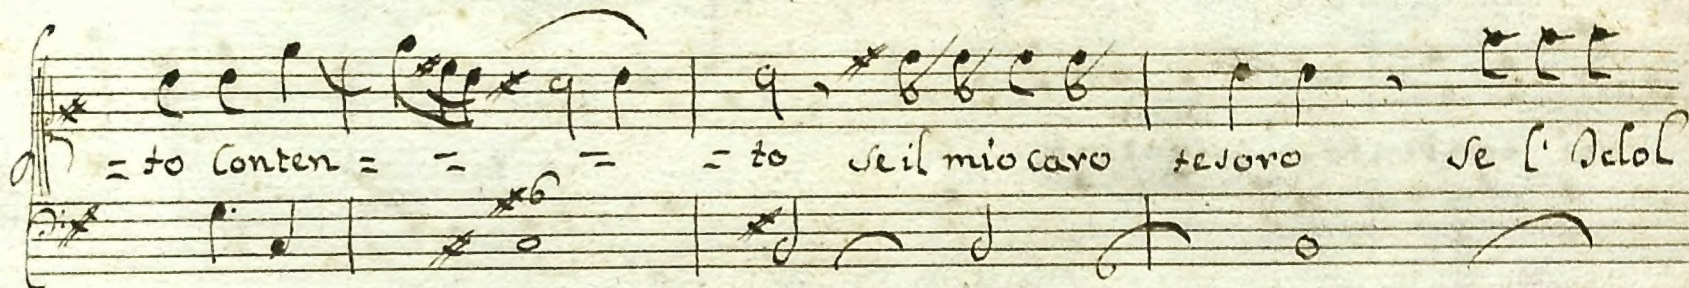 = to Conten = = = = to se il mio caro tesoro se l' Idol
6